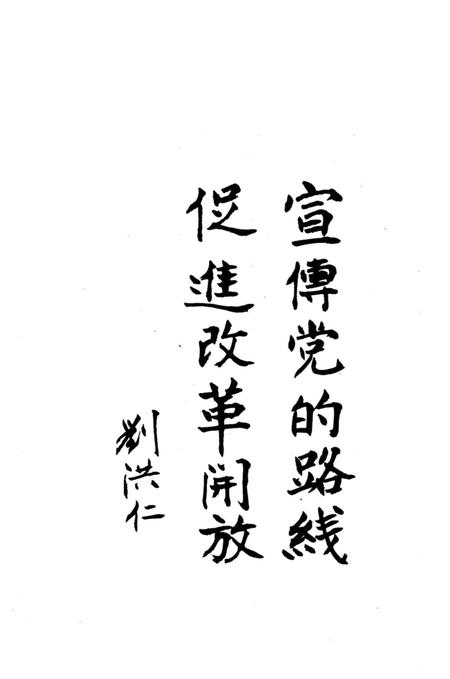 宣傳党的路綫
促進改革開放
劉洪仁